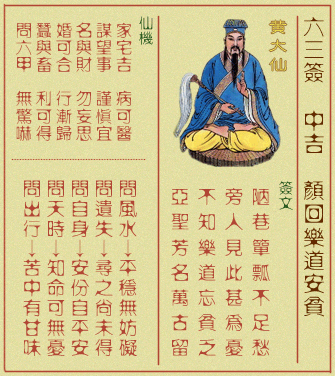 六三簽 中吉 顏回樂道安貧
黃大仙
簽文
陋巷簞瓢不足愁
旁人見此甚為憂
不知樂道忘貧乏
亞聖芳名萬古留
仙機
家宅吉 病可醫
謀望事 謹慎宜
名與財 勿妄思
婚可合 行漸歸
蠶與畜 利可得
問六甲 無驚嚇
問風水→平穩無妨礙
問遺失→尋之尚未得
問自身→安份自平安
問天時→知命可無憂
問出行→苦中有甘味